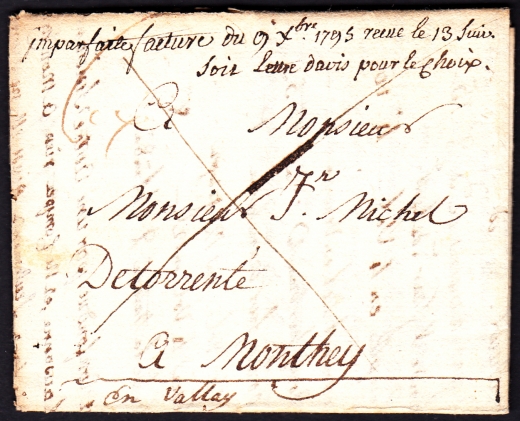 imparfaite facture du 9 Xbre 1795 recue le 13 Suiv.
soit lettre davis pour le Choix.
A Monsieur
Monsieur Jn Michel
Detorrenté
A Monthey
En Vallay